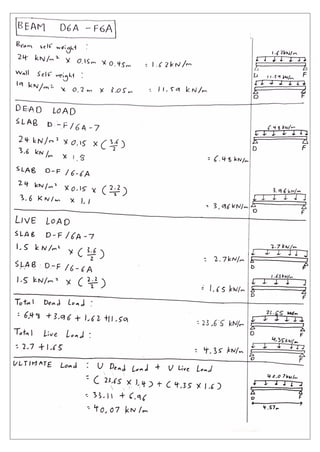 BEAM D6A - F6A
Beam self weight :
24 kN/m² x 0.15m x 0.45m = 1.62kN/m
1.62kN/m
Wall self weight :
19 kN/m² x 0.2m x 3.05m = 11.59 kN/m
D F
11.59kN/m
D F
DEAD LOAD
SLAB D-F/6A-7
24 kN/m² x 0.15 x (3.6/2)
3.6 kN/m x 1.8 = 6.48kN/m
6.48kN/m
D F
SLAB D-F/6-6A
24 kN/m² x 0.15 x (2.2/2)
3.6 KN/m x 1.1 = 3.96kN/m
3.96kN/m
D F
LIVE LOAD
SLAB D-F/6A-7
1.5 kN/m² x (3.6/2) = 2.7kN/m
2.7kN/m
D F
SLAB D-F/6-6A
1.5 kN/m² x (2.2/2) = 1.65 kN/m
1.65kN/m
D F
Total Dead Load :
= 6.48 + 3.96 + 1.62 + 11.59 = 23.65 kN/m
23.65 kN/m
D F
Total Live Load :
= 2.7 + 1.65 = 4.35 kN/m
4.35kN/m
D F
ULTIMATE Load : U Dead Load + U Live Load
= (23.65 x 1.4) + (4.35 x 1.6)
= 33.11 + 6.96
= 40.07 kN/m
40.07kN/m
D F
4.57m